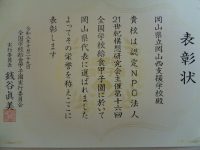 表彰状
岡山県立岡山西支援学校殿
貴校は認定NPO法人
21世紀構想研究会主催第十六回
全国学校給食甲子園において
岡山県代表に選ばれました
よってその栄誉を称えここに
表彰します
全国学校給食甲子園実行委員会
実行委員長
銭谷眞美